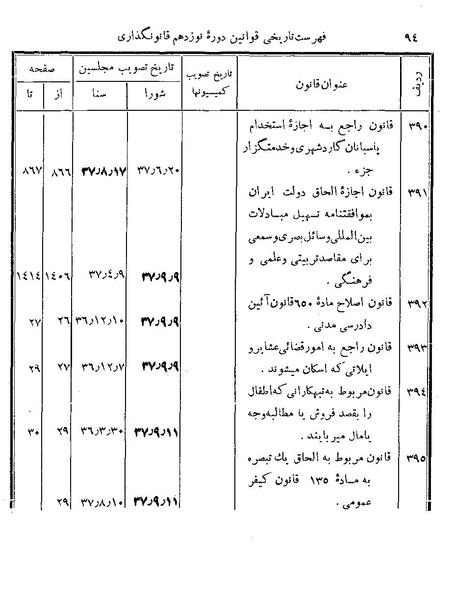 ۹۴ فهرست تاریخی قوانین دورهٔ نوزدهم قانونگذاری
ردیف عنوان قانون تاریخ تصویب کمیسیونها تاریخ تصویب مجلسین صفحه
شورا سنا از تا
۳۹۰ قانون راجع به اجازهٔ استخدام
پاسبانان گارد شهری و خدمتگزار
جزء . ۳۷٫۶٫۲۰ ۳۷٫۸٫۱۷ ۸۶۶ ۸۶۷
۳۹۱ قانون اجازهٔ الحاق دولت ایران
بموافقتنامه تسهیل مبادلات
بین‌المللی وسائل بصری و سمعی
برای مقاصد تربیتی و علمی و
فرهنگی . ۳۷٫۹٫۹ ۳۷٫۴٫۹ ۱۴۰۶ ۱۴۱۴
۳۹۲ قانون اصلاح مادهٔ ۶۵۰ قانون آئین
دادرسی مدنی . ۳۷٫۹٫۹ ۳۶٫۱۲٫۱۰ ۲۶ ۲۷
۳۹۳ قانون راجع به امور قضائی عشایر و
ایلاتی که اسکان میشوند . ۳۷٫۹٫۹ ۳۶٫۱۲٫۷ ۲۷ ۲۹
۳۹۴ قانون مربوط به تبهکارانی که اطفال
را بقصد فروش یا مطالبه وجه
یا مال میربایند . ۳۷٫۹٫۱۱ ۳۶٫۳٫۳۰ ۲۹ ۳۰
۳۹۵ قانون مربوط به الحاق یك تبصره
به مادهٔ ۱۳۵ قانون کیفر
عمومی . ۳۷٫۹٫۱۱ ۳۷٫۸٫۱۰ ۲۹